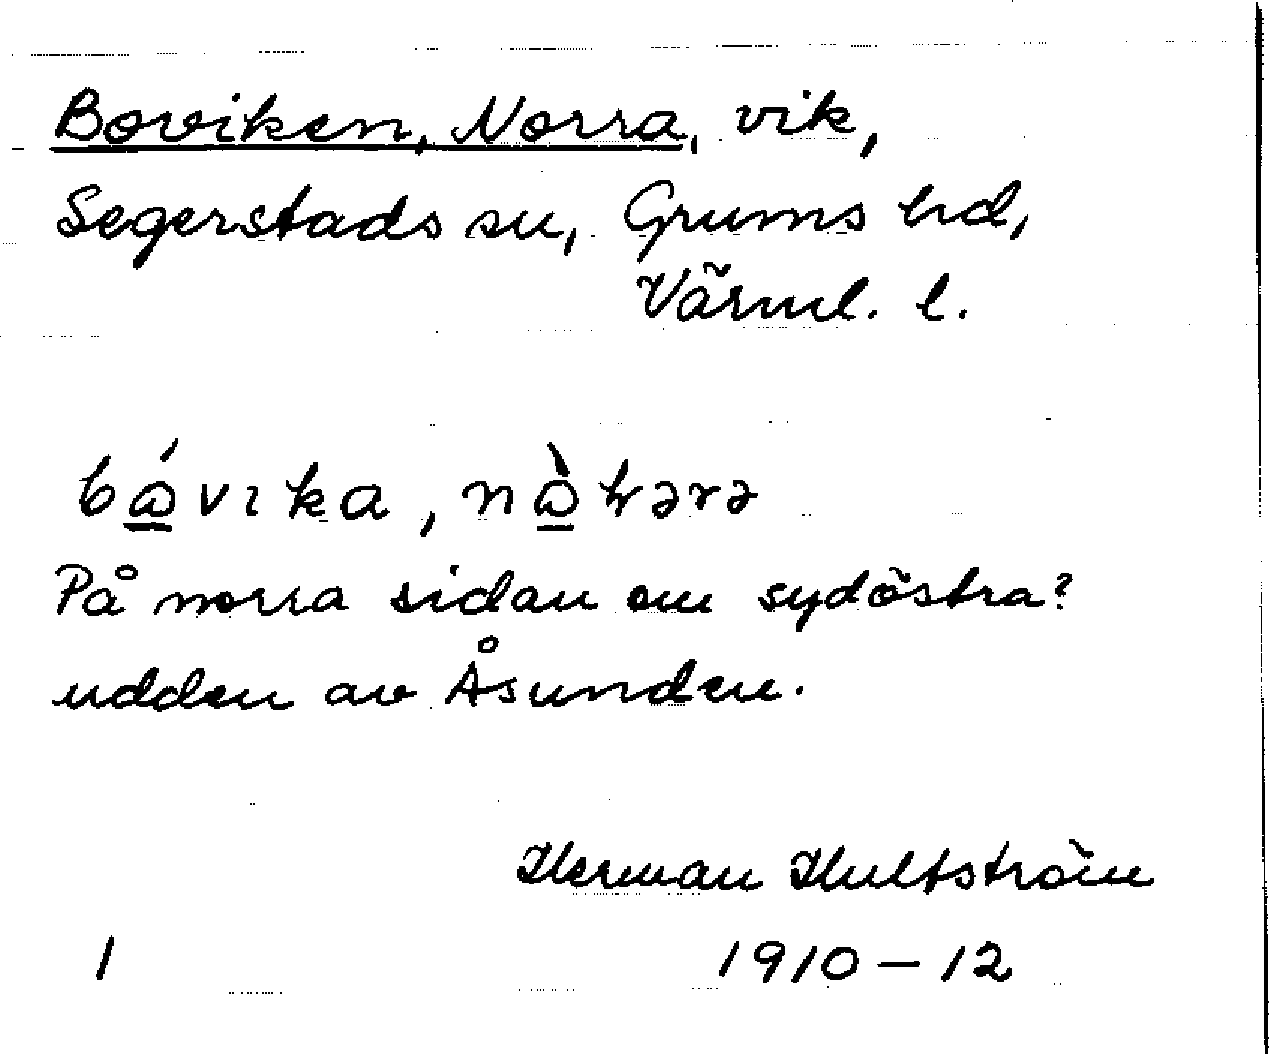 Boviken, Norra, vik,
Segerstads sn, Grums hd,
Värml. l.
bώvıka, nὼꞧərə
På norra sidan om sydöstra?
udden av Åsunden.
Herman Hultström
1 1910–12